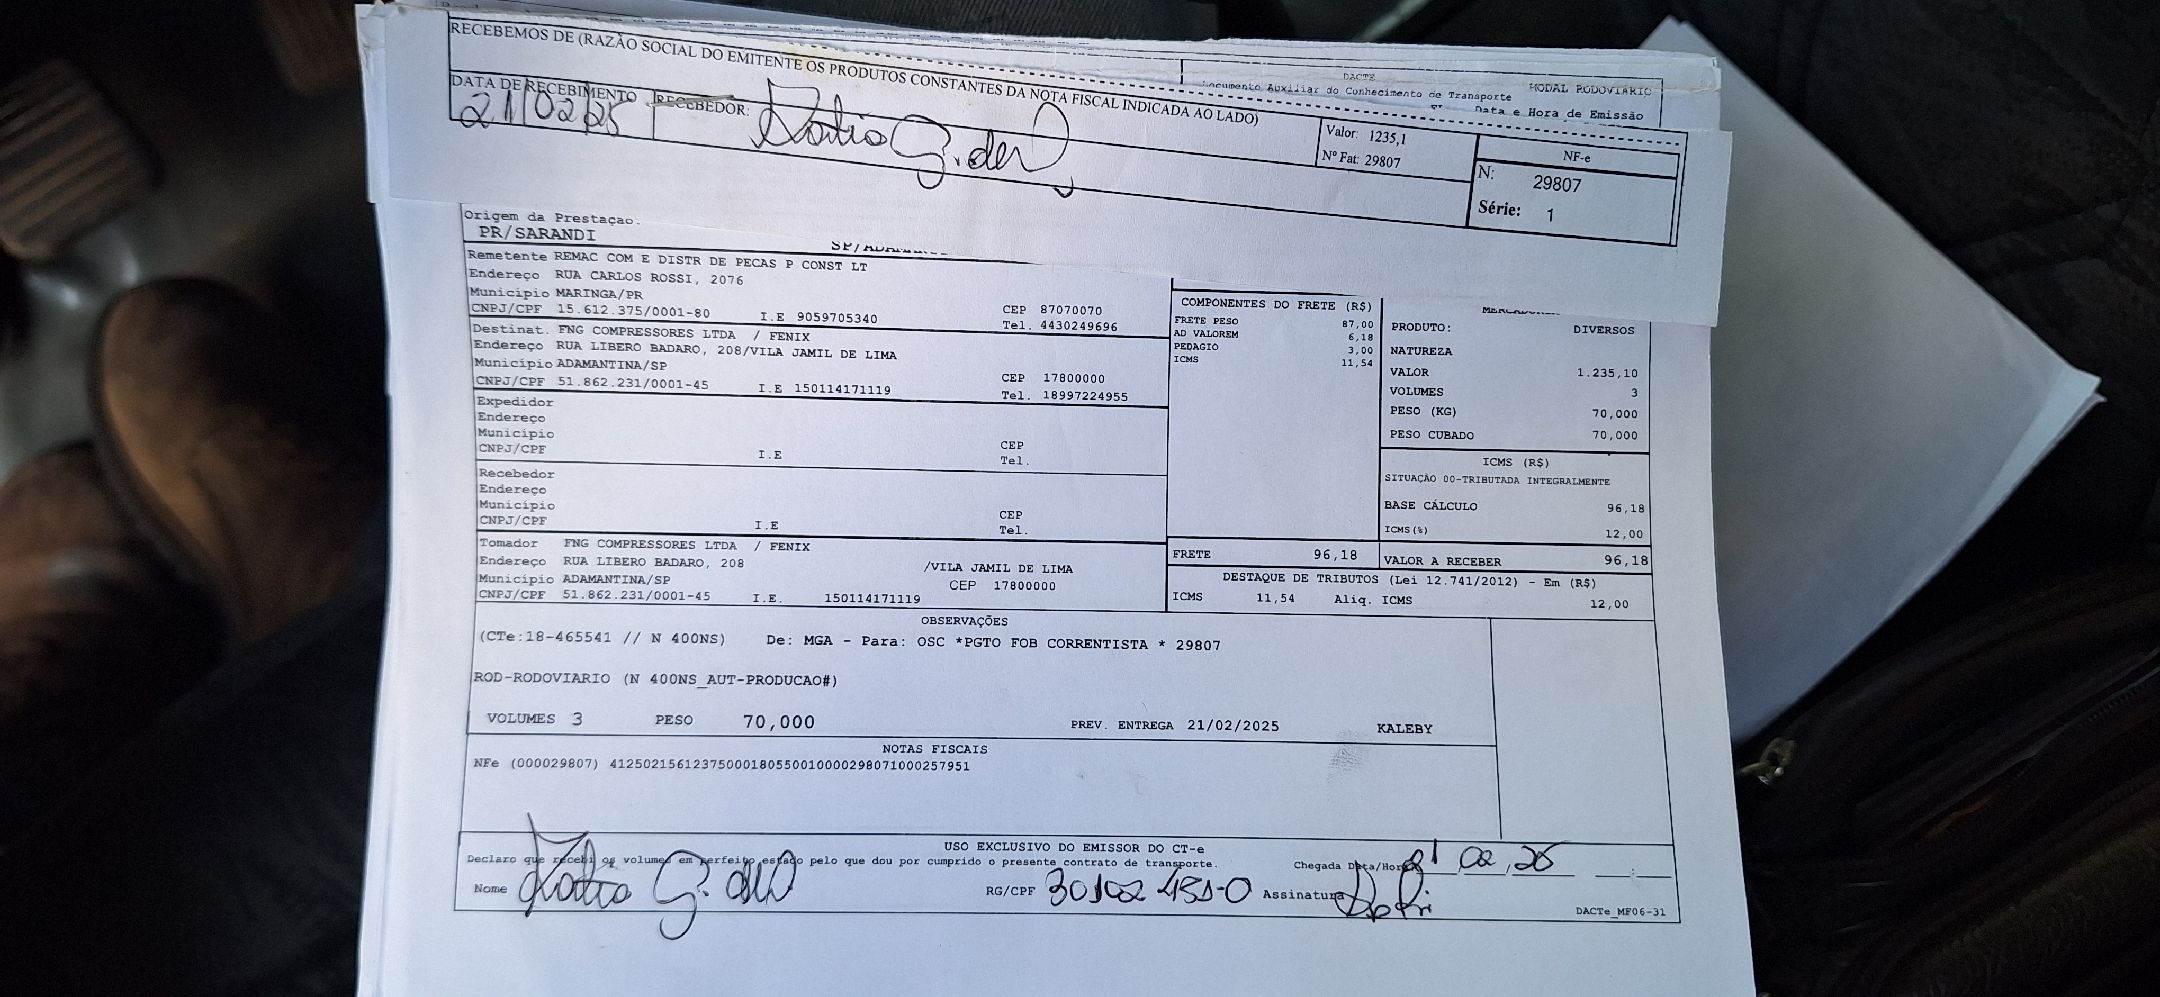 RECEBEMOS DE (RAZÃO SOCIAL DO EMITENTE OS PRODUTOS CONSTANTES DA NOTA FISCAL INDICADA AO LADO)
DACTE
Documento Auxiliar do Conhecimento de Transporte
MODAL RODOVIÁRIO
Data e Hora de Emissão
DATA DE RECEBIMENTO
RECEBEDOR:
21/02/25
Valor: 1235,1
Nº Fat: 29807
NF-e
N: 29807
Série: 1
Origem da Prestaçao.
PR/SARANDI
Remetente REMAC COM E DISTR DE PECAS P CONST LT
Endereço RUA CARLOS ROSSI, 2076
Município MARINGA/PR
CEP 87070070
CNPJ/CPF 15.612.375/0001-80 I.E 9059705340 Tel. 4430249696
Destinat. FNG COMPRESSORES LTDA / FENIX
Endereço RUA LIBERO BADARO, 208/VILA JAMIL DE LIMA
Município ADAMANTINA/SP CEP 17800000
CNPJ/CPF 51.862.231/0001-45 I.E 150114171119 Tel. 18997224955
Expedidor
Endereço
Município CEP
CNPJ/CPF I.E Tel.
Recebedor
Endereço
Município CEP
CNPJ/CPF I.E Tel.
Tomador FNG COMPRESSORES LTDA / FENIX
Endereço RUA LIBERO BADARO, 208 /VILA JAMIL DE LIMA
Município ADAMANTINA/SP CEP 17800000
CNPJ/CPF 51.862.231/0001-45 I.E. 150114171119
COMPONENTES DO FRETE (R$)
FRETE PESO 87,00
AD VALOREM 6,18
PEDAGIO 3,00
ICMS 11,54
FRETE 96,18
PRODUTO: DIVERSOS
NATUREZA
VALOR 1.235,10
VOLUMES 3
PESO (KG) 70,000
PESO CUBADO 70,000
ICMS (R$)
SITUAÇÃO 00-TRIBUTADA INTEGRALMENTE
BASE CÁLCULO 96,18
ICMS(%) 12,00
VALOR A RECEBER 96,18
DESTAQUE DE TRIBUTOS (Lei 12.741/2012) - Em (R$)
ICMS 11,54 Aliq. ICMS 12,00
OBSERVAÇÕES
(CTe:18-465541 // N 400NS) De: MGA - Para: OSC *PGTO FOB CORRENTISTA * 29807
ROD-RODOVIARIO (N 400NS_AUT-PRODUCAO#)
VOLUMES 3 PESO 70,000 PREV. ENTREGA 21/02/2025 KALEBY
NOTAS FISCAIS
NFe (000029807) 41250215612375000180550010000298071000257951
USO EXCLUSIVO DO EMISSOR DO CT-e
Declaro que recebi os volumes em perfeito estado pelo que dou por cumprido o presente contrato de transporte.
Chegada Data/Hora 21 02 25
Nome
RG/CPF
Assinatura
DACTe_MF06-31